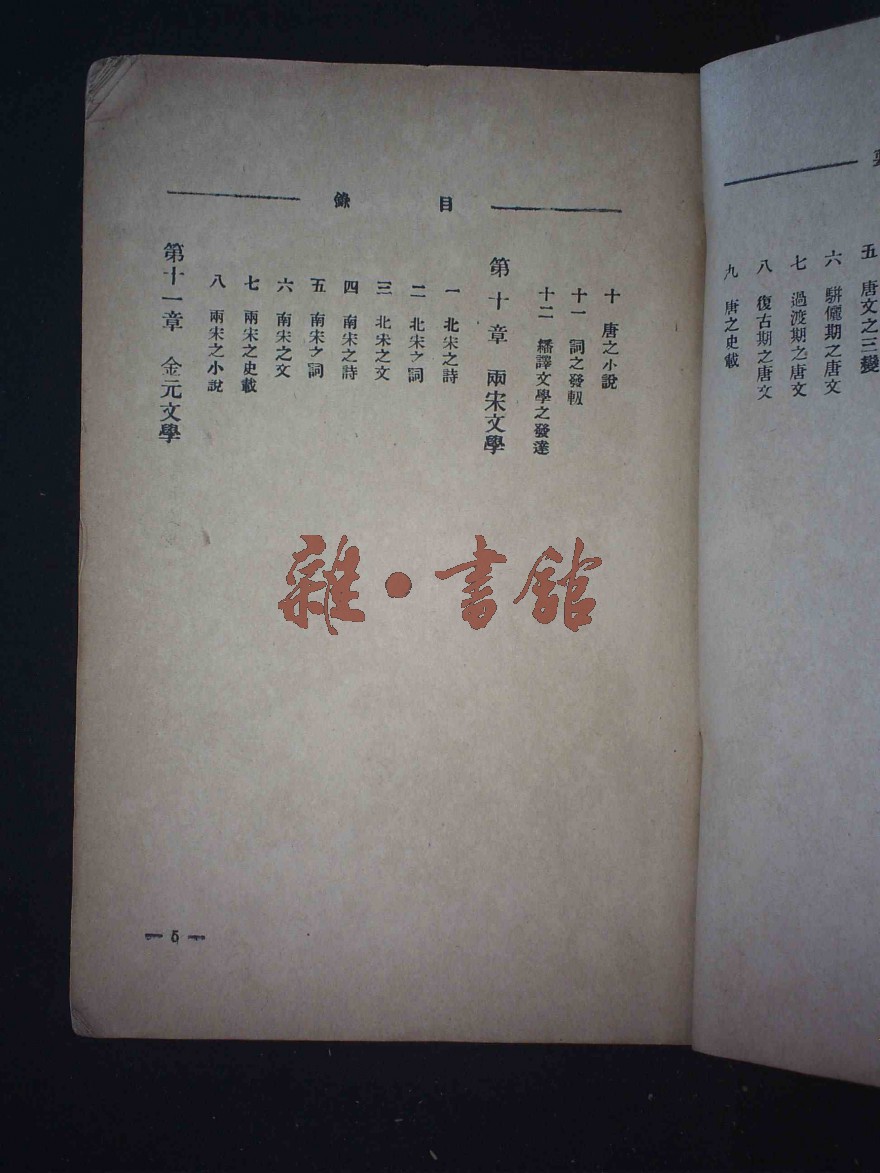 五　唐文之三變
六　駢儷期之唐文
七　過渡期之唐文
八　復古期之唐文
九　唐之史載
目錄
十　唐之小說
十一　詞之發軔
十二　繙譯文學之發達
第十章　兩宋文學
一　北宋之詩
二　北宋之詞
三　北宋之文
四　南宋之詩
五　南宋之詞
六　南宋之文
七　兩宋之史載
八　兩宋之小說
第十一章　金元文學
— 5 —
雜·書館